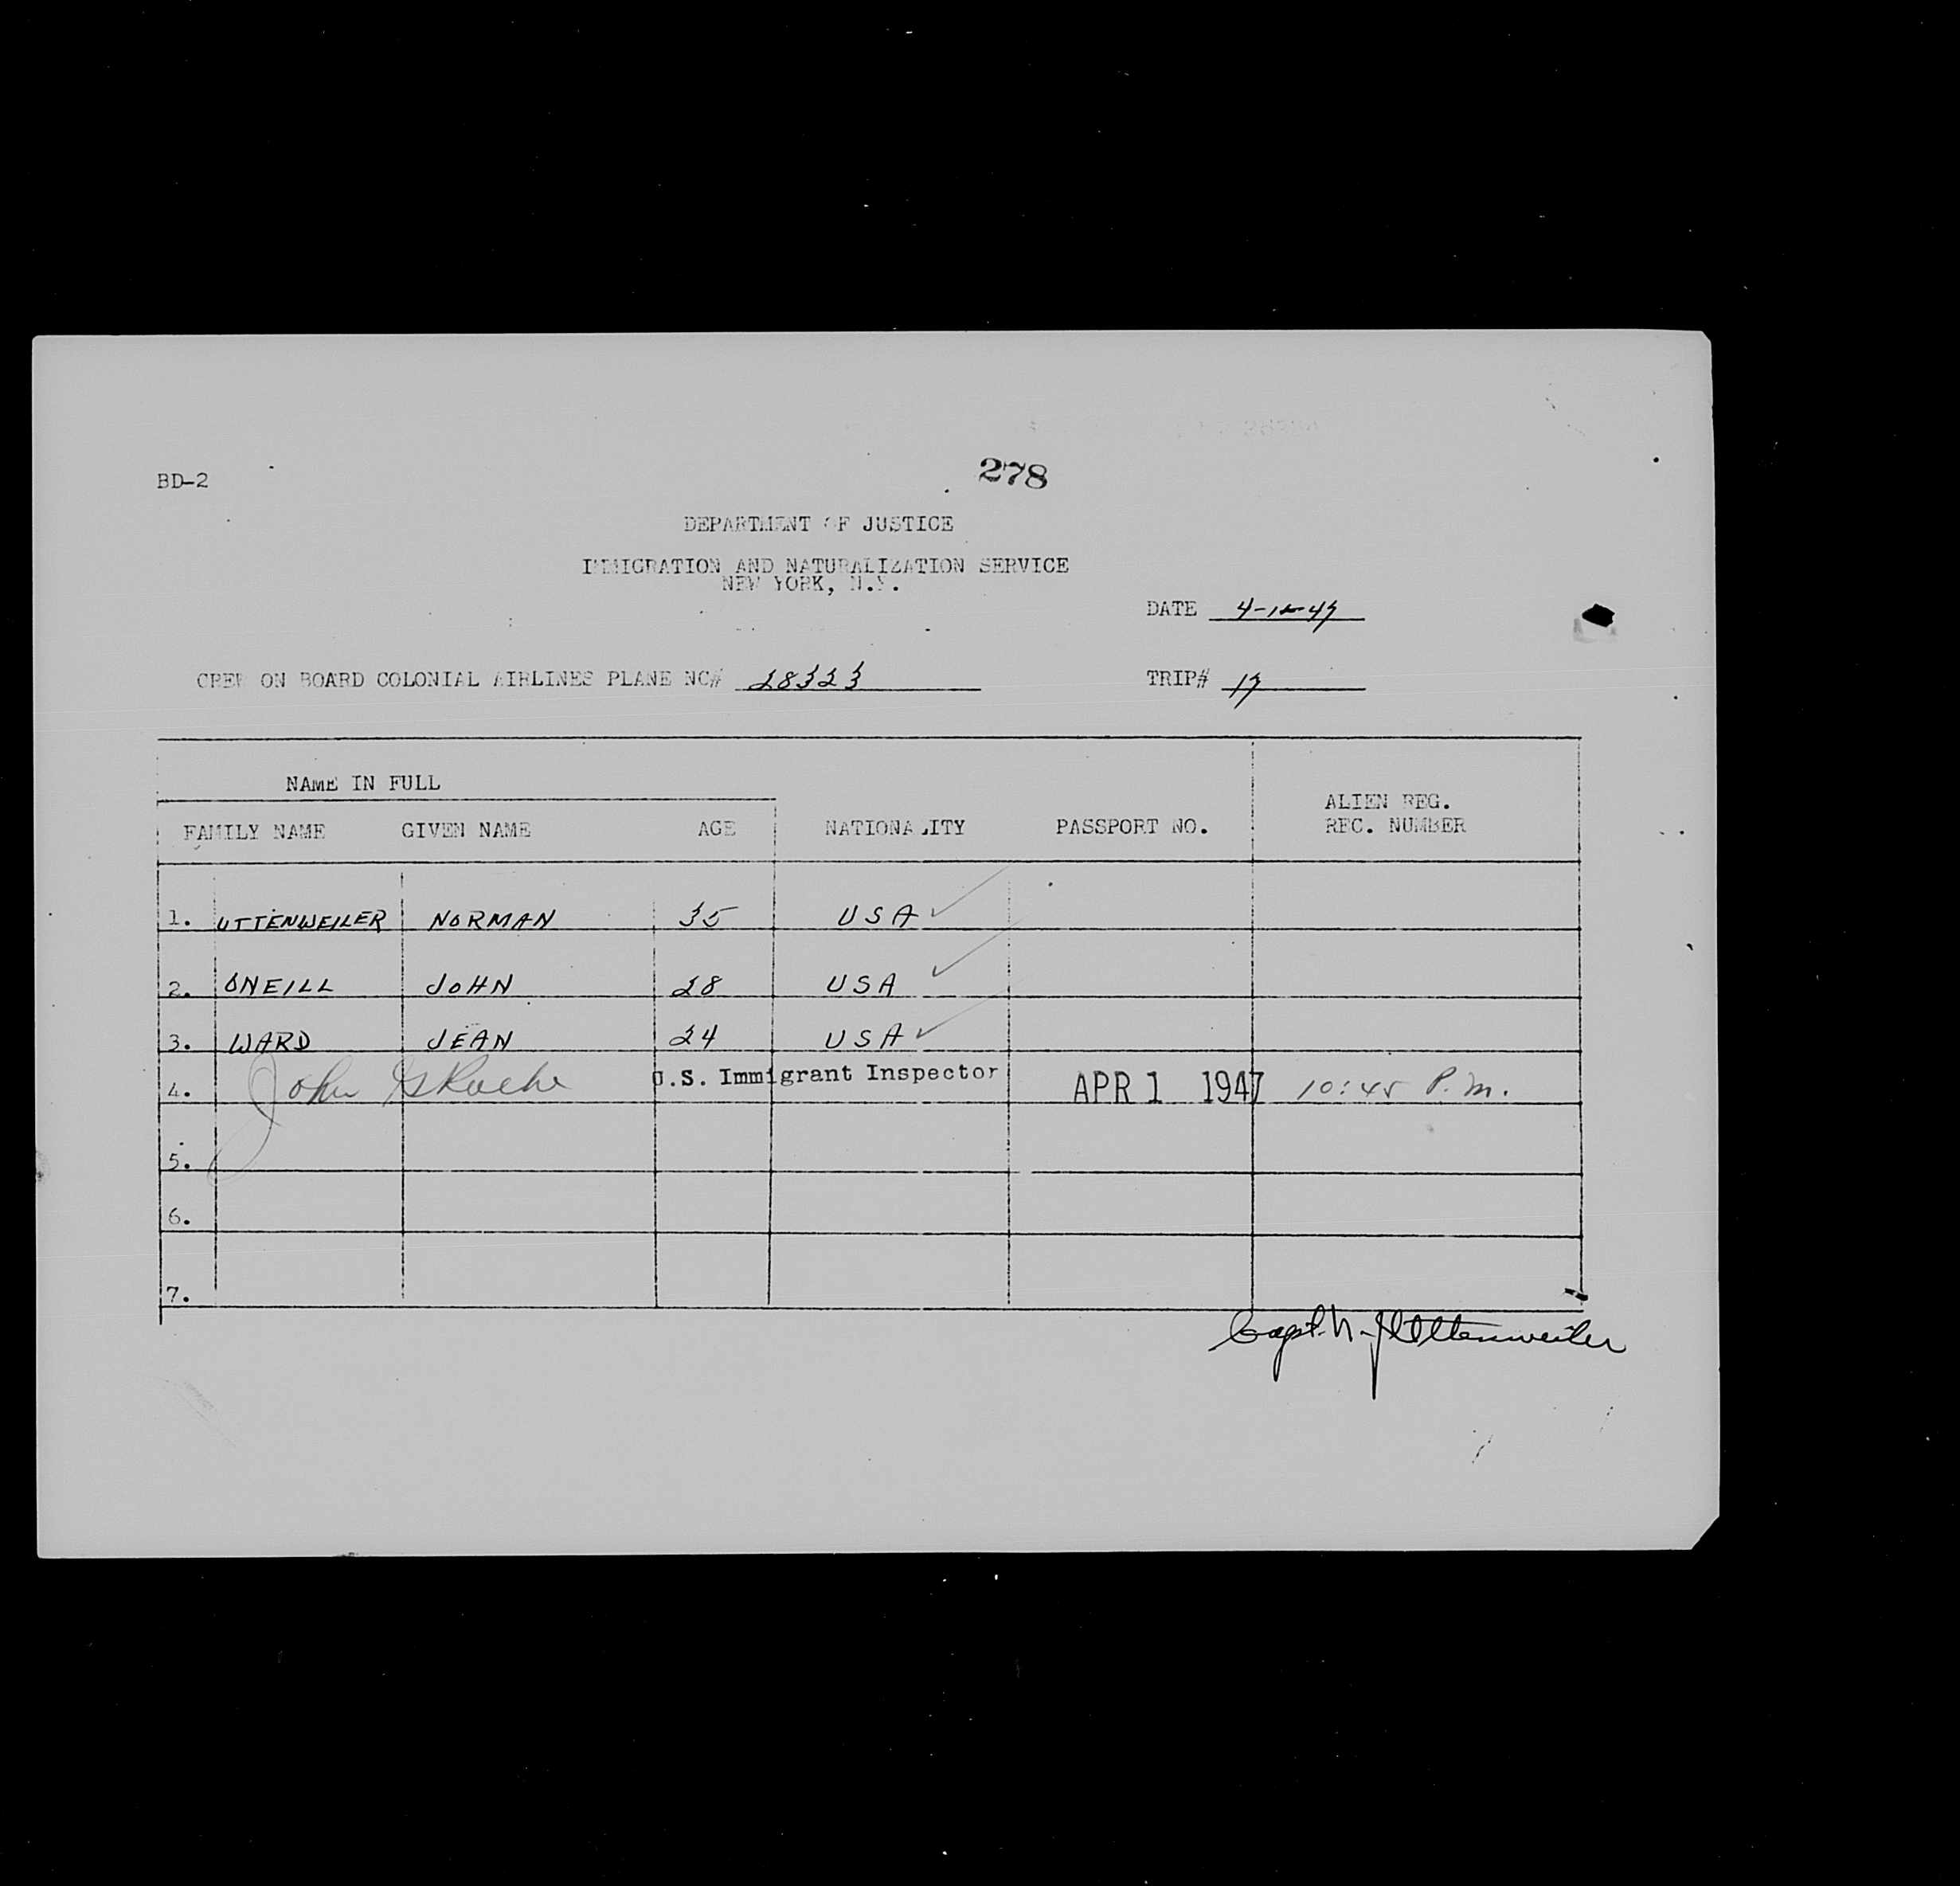 278
BD-2
DEPARTMENT OF JUSTICE
IMMIGRATION AND NATURALIZATION SERVICE
NEW YORK, N.Y.
DATE
CREW ON BOARD COLONIAL AIRLINES PLANE NC# 28323 TRIP# 17
NAME IN FULL
FAMILY NAME GIVEN NAME AGE NATIONALITY PASSPORT NO. ALIEN REG. REC. NUMBER
1. UTTENWEILER NORMAN 35 USA ✓
2. ONEILL JOHN 28 USA ✓
3. WARD JEAN 24 USA ✓
4. John Roche U.S. Immigrant Inspector APR 1 1947 10:45 P.M.
5.
6.
7.
Capt. N. J. Uttenweiler